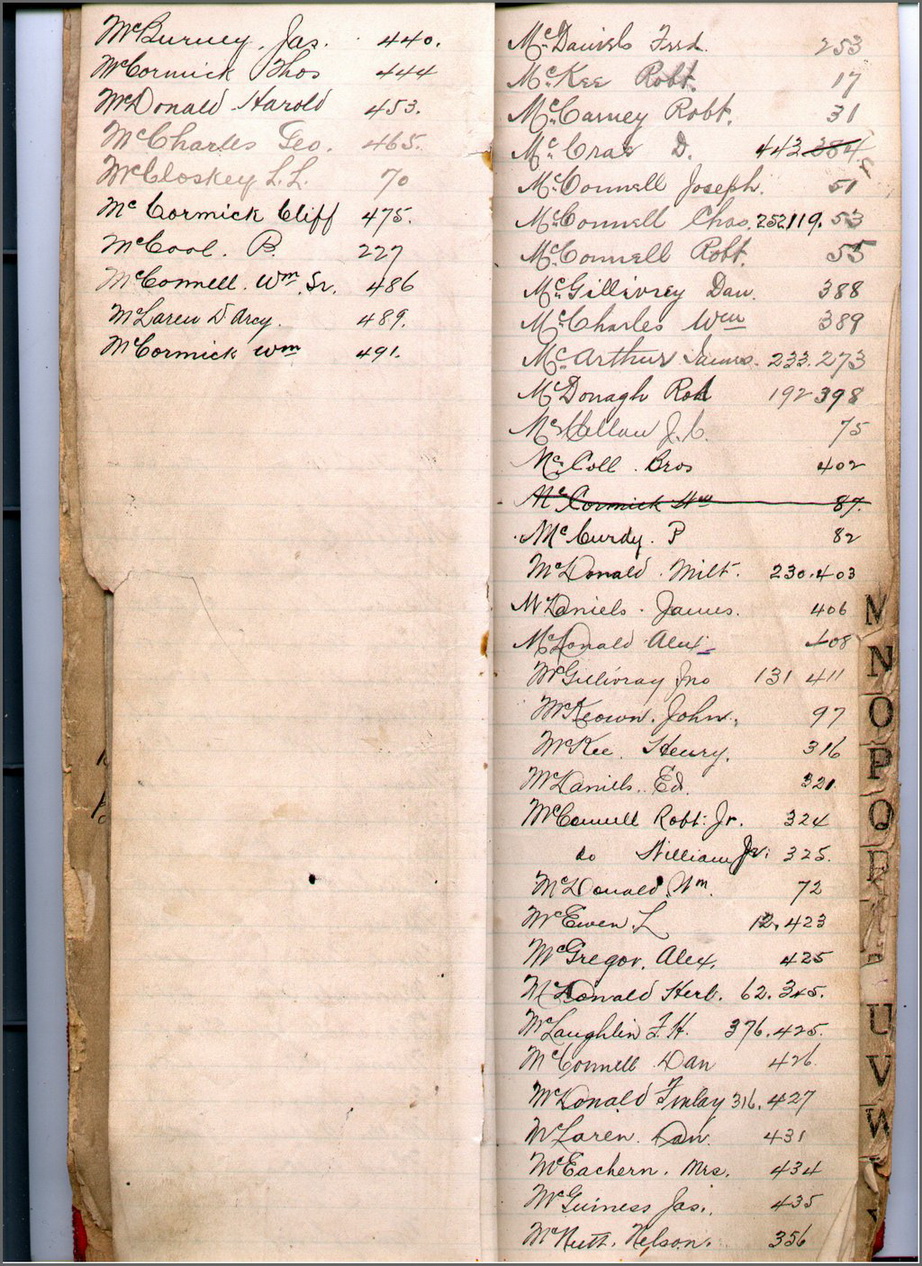 McBurney, Jas. 440.
McCormick Thos 444
McDonald Harold 453.
McCharles Geo. 465.
McCloskey L.L. 70
Mc Cormick Cliff 475.
McCool. B. 227
McConnell. Wm Sr. 486
McLaren D'Arcy. 489.
McCormick Wm 491.
McDaniels Fred. 253
McKee Robt. 17
McCarney Robt. 31
McCrae D. 443 384
McConnell Joseph. 51
McConnell Chas. 252 119. 53
McConnell Robt. 55
McGillivrey Dan. 388
McCharles Wm 389
McArthur James. 233. 273
McDonagh Robt 192 398
J.C. 75
McColl. Bros 402
McCormick Wm 87.
McCurdy. P 82
McDonald. Milt. 230. 403
McDaniels. James. 406
McDonald Alex. 408
McGillivray Jno 131 411
McKeown. John. 97
McKee. Henry. 316
McDaniels. Ed. 321
McConnell Robt. Jr. 324
do William Jr: 325.
McDonald. Wm. 72
McEwen. L 12, 423
McGregor. Alex. 425
McDonald Herb. 62. 345.
McLaughlin F.H. 376. 425.
McConnell Dan 426
McDonald Finlay 316. 427
McLaren. Dan. 431
McEachern. Mrs. 434
McGuiness Jas. 435
McNutt. Nelson. 356
M
N
O
P
Q
R
U
V
W